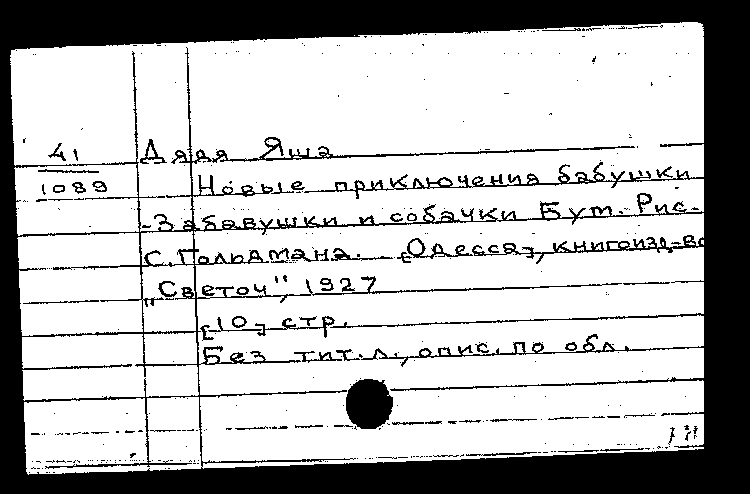 41
1089
Дядя Яша
Новые приключения бабушки
-Забавушки и собачки Бум. Рис.
С. Гольдмана. [Одесса], книгоизд-во
„Светоч", 1927
[10] стр.
Без тит. л., опис. по обл.